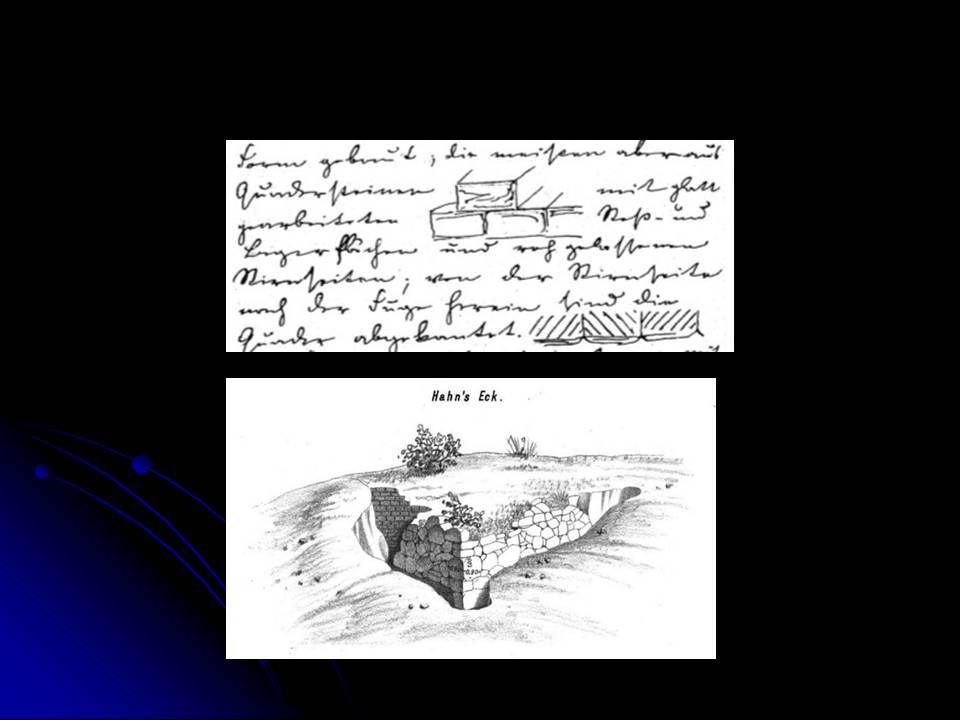 Form gebaut; die meisten aber aus
Quadersteinen mit glatt
gearbeiteten Stoß- und
Lagerflächen und roh gelassenen
Stirnseiten; von der Stirnseite
nach der Fuge herein sind die
Quader abgekantet.
Hahn's Eck.